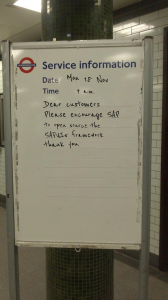 Service information
Date Mon 18 Nov
Time a.m.
Dear customers
Please encourage SAP
to open source the
SAPUI5 framework
thank you